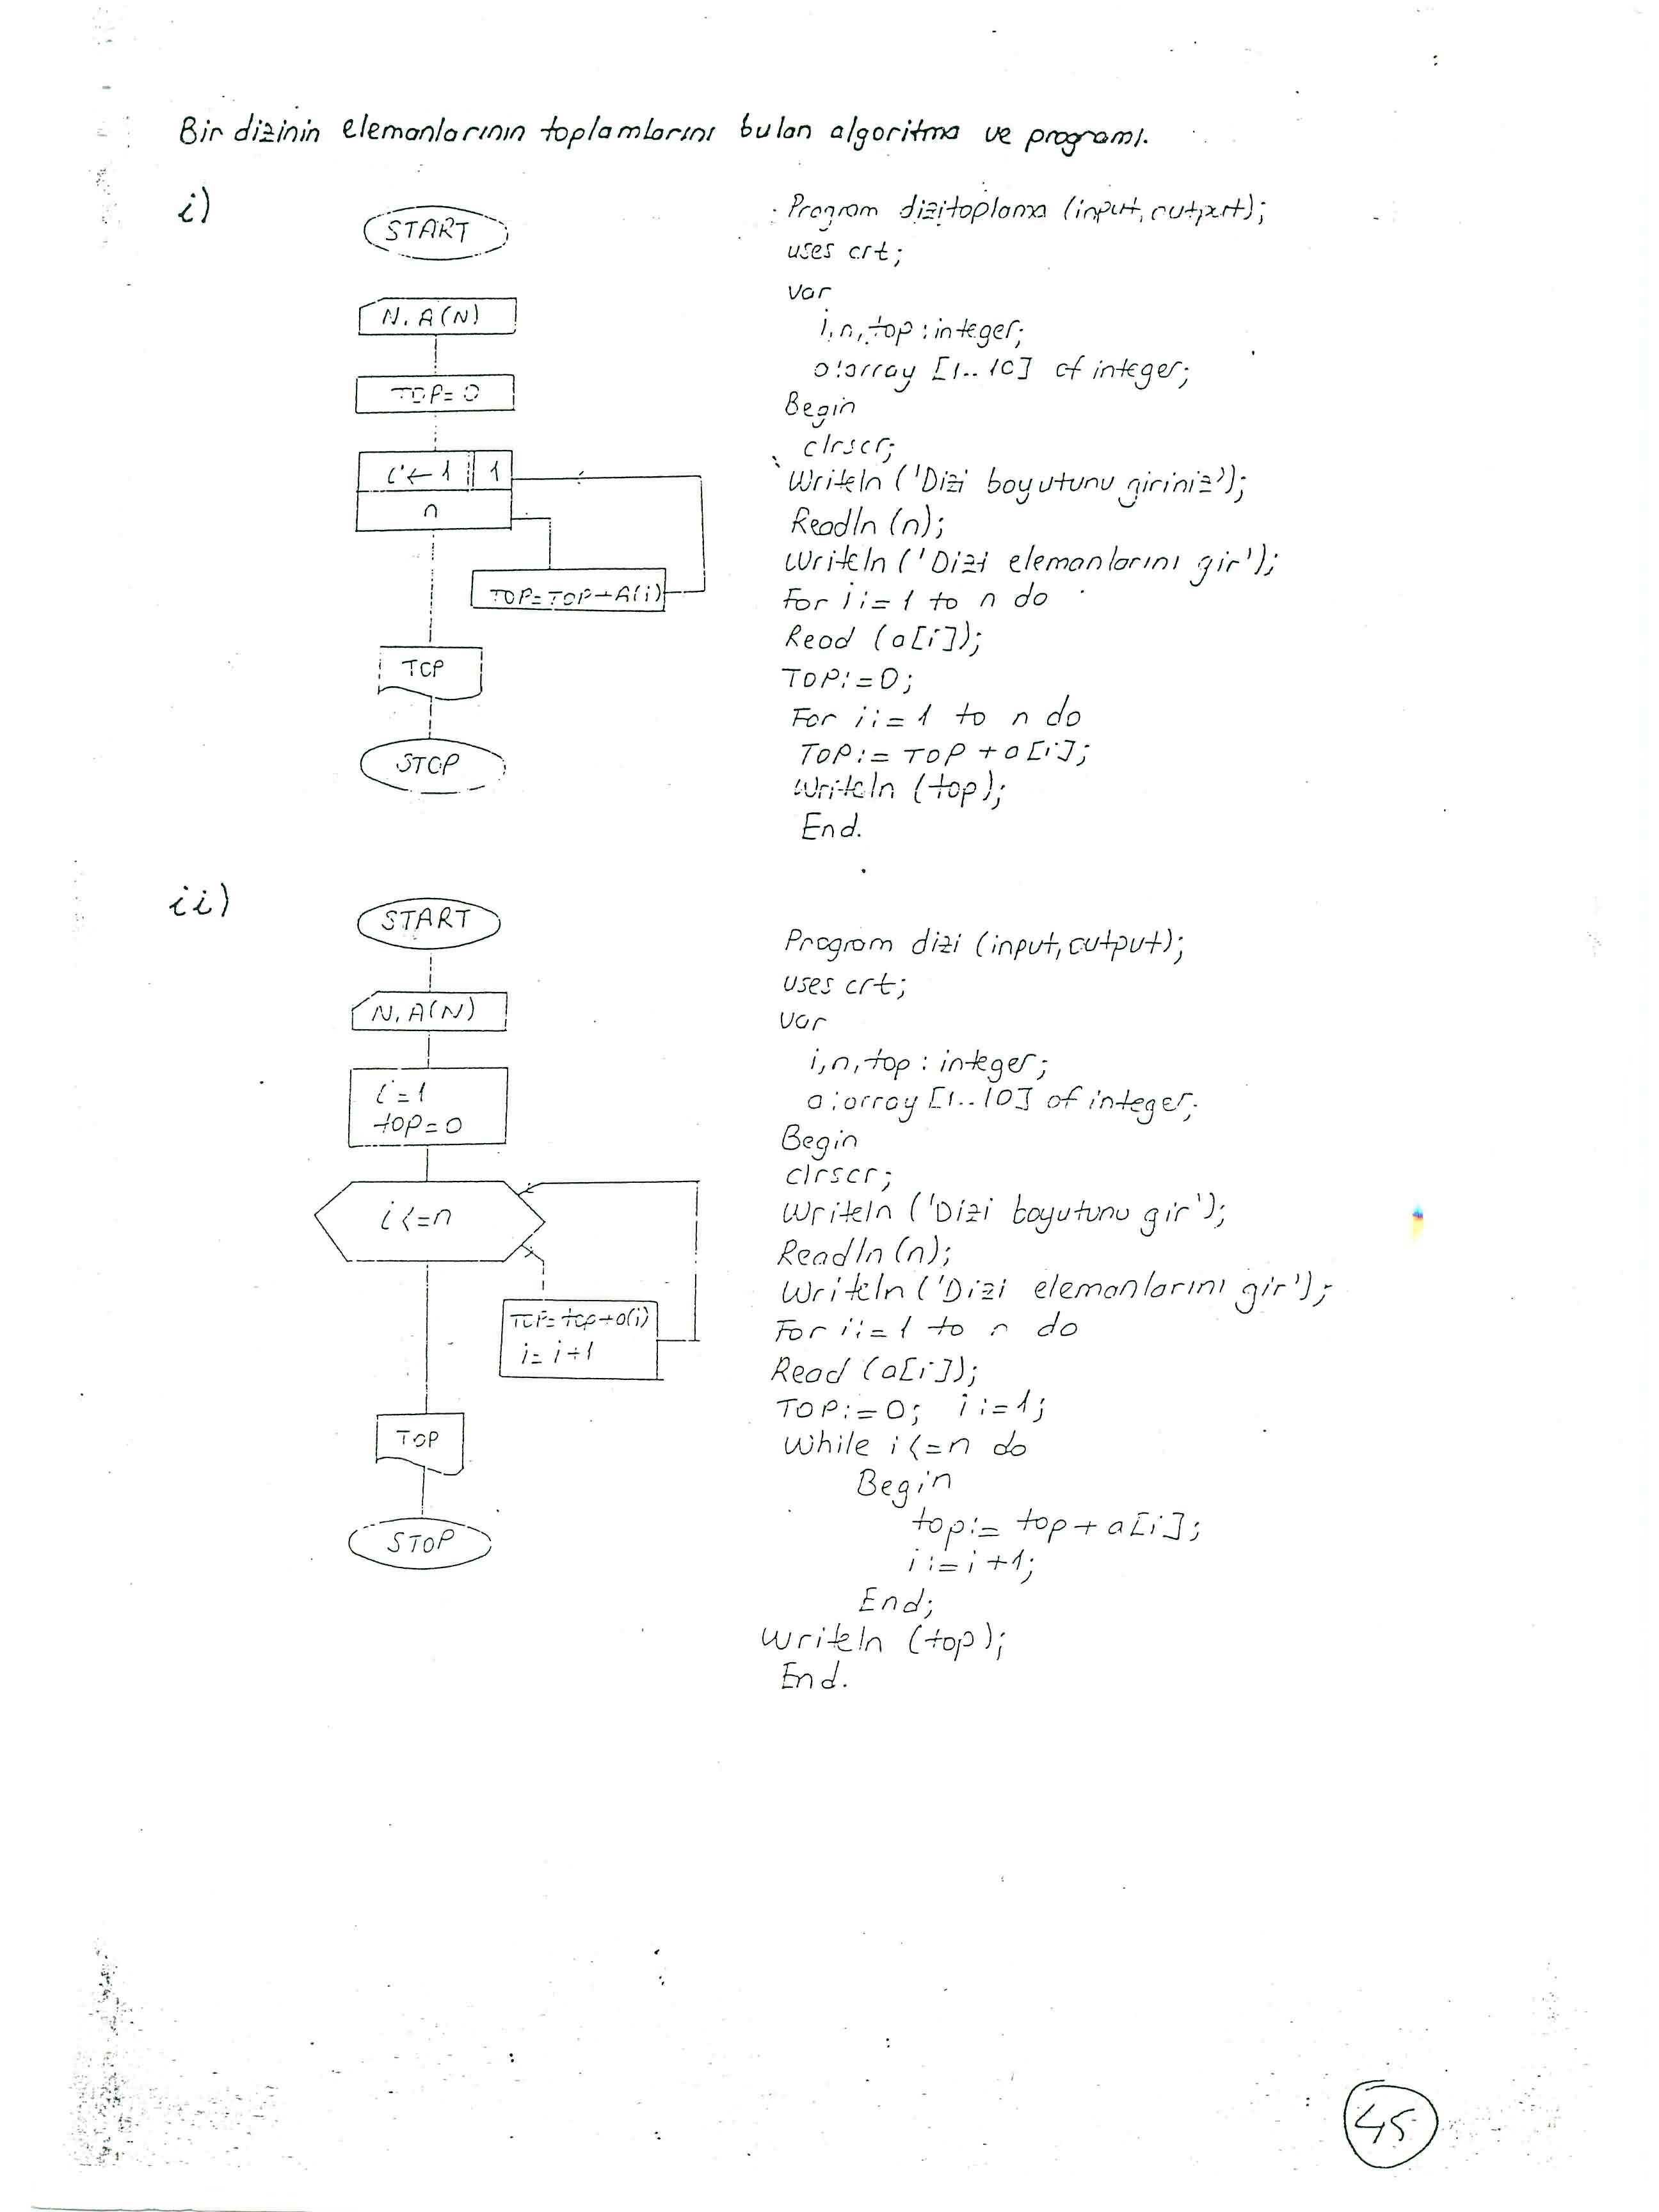 Bir dizinin elemanlarının toplamlarını bulan algoritma ve programı.
i)
START
N, A(N)
TOP=0
i←1 1
n
TOP=TOP+A(i)
TOP
STOP
Program dizitoplama (input, output);
uses crt;
var
i,n,top : integer;
a:array [1..10] of integer;
Begin
clrscr;
Writeln ('Dizi boyutunu giriniz');
Readln (n);
Writeln ('Dizi elemanlarını gir');
For i:=1 to n do
Read (a[i]);
TOP:=0;
For i:=1 to n do
TOP:= TOP + a[i];
Writeln (top);
End.
ii)
START
N, A(N)
i=1
top=0
i<=n
TOP=top+a(i)
i=i+1
TOP
STOP
Program dizi (input, output);
uses crt;
var
i,n,top : integer;
a:array [1..10] of integer;
Begin
clrscr;
Writeln ('Dizi boyutunu gir');
Readln (n);
Writeln ('Dizi elemanlarını gir');
For i:=1 to n do
Read (a[i]);
TOP:=0; i:=1;
While i<=n do
Begin
top:= top+a[i];
i:=i+1;
End;
Writeln (top);
End.
45